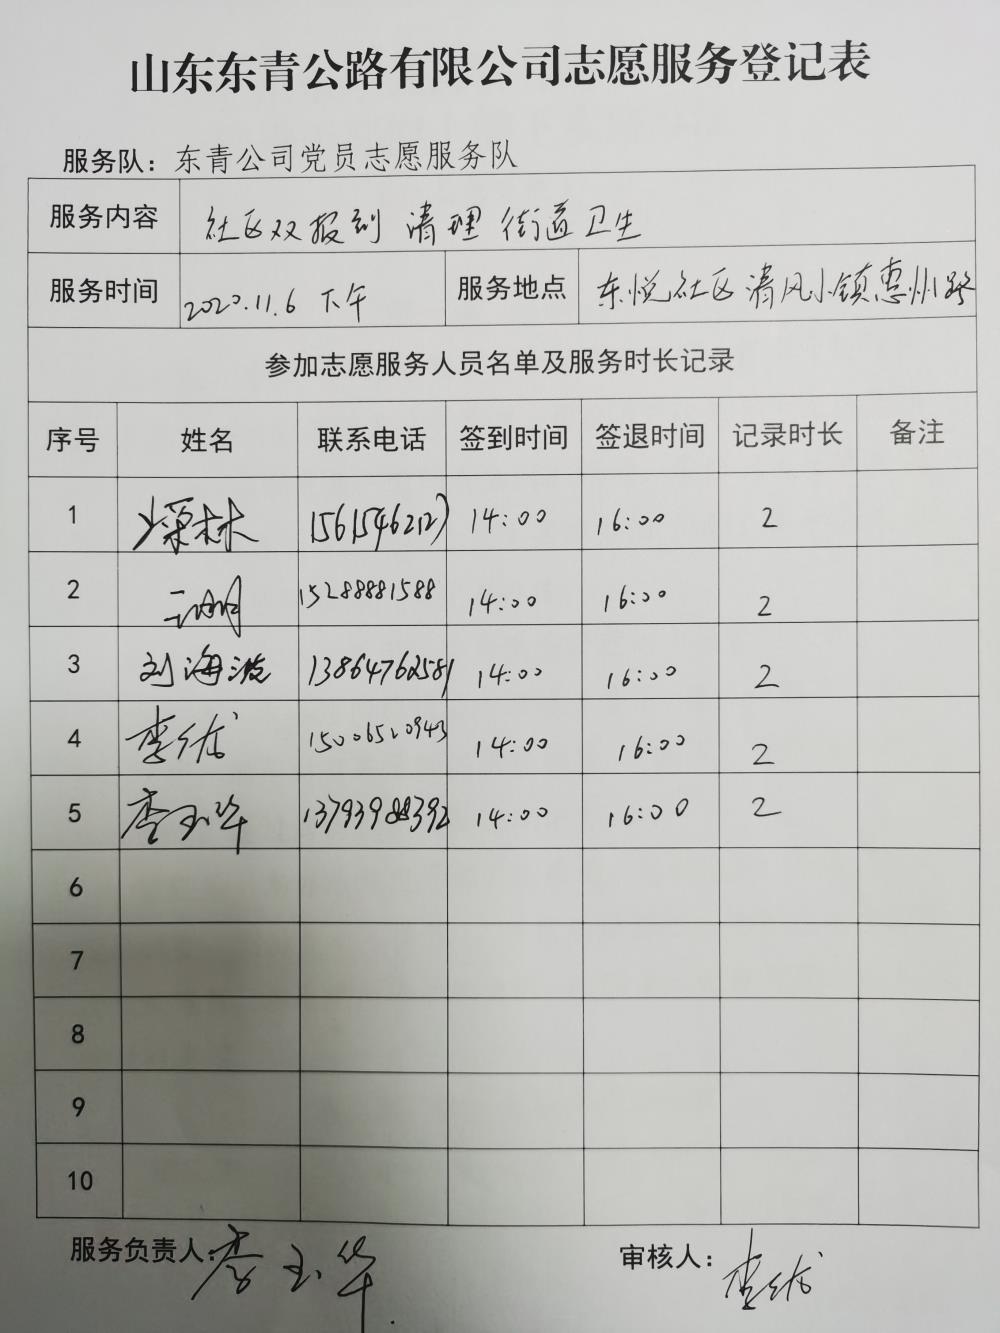 山东东青公路有限公司志愿服务登记表
服务队：东青公司党员志愿服务队
服务内容 社区双报到 清理 街道卫生
服务时间 2020.11.6 下午 服务地点 东悦社区清风小镇惠州路
参加志愿服务人员名单及服务时长记录
序号 姓名 联系电话 签到时间 签退时间 记录时长 备注
1 14:00 16:00 2
2 15288881588 14:00 16:00 2
3 刘海波 13864762581 14:00 16:00 2
4 李优 14:00 16:00 2
5 李玉华 14:00 16:00 2
6
7
8
9
10
服务负责人：李玉华 审核人：李优